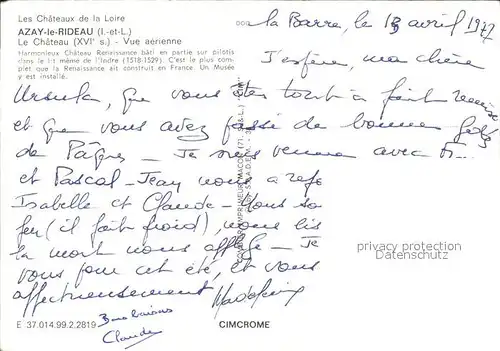 Les Châteaux de la Loire
AZAY-le-RIDEAU (I.-et-L.)
Le Château (XVIe s.) - Vue aérienne
Harmonieux Château Renaissance bâti en partie sur pilotis
dans le lit même de l'Indre (1518-1529). C'est le plus com-
plet que la Renaissance ait construit en France. Un Musée
y est installé.
la Barre, le 13 avril 1977
J'espère, ma chère
Ursula, que vous êtes tout à fait
et que vous avez passé de bonnes fêtes
de Pâques - Je suis venue avec
et Pascal - Jean nous a
Isabelle et Claude - Nous
feu (il fait froid), nous
la mort nous afflige - Je
vous pour cet été, et vous
affectueusement Madeleine
Bons baisers
Claude
privacy protection
Datenschutz
E 37.014.99.2.2819
CIMCROME